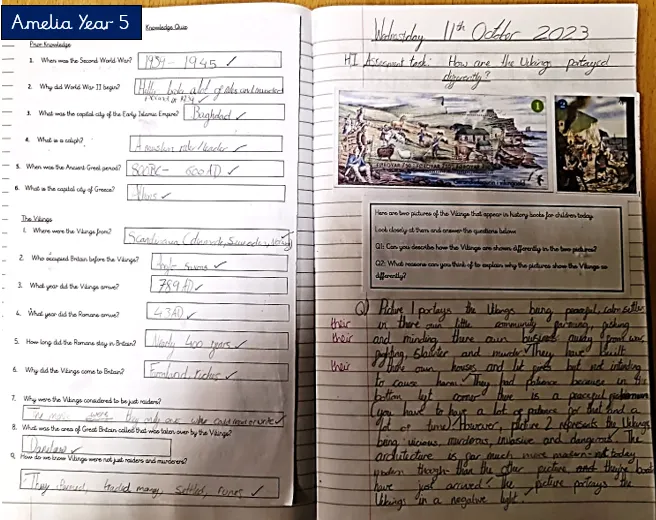 Amelia Year 5
Knowledge Quiz
Prior Knowledge
1. When was the Second World War?
1939 - 1945 ✓
2. Why did World War II begin?
took of and
3. What was the capital city of the Early Islamic Empire?
Baghdad ✓
4. What is a caliph?
A muslim ruler/leader ✓
5. When was the Ancient Greek period?
800BC - 600AD ✓
6. What is the capital city of Greece?
Athens ✓
The Vikings
1. Where were the Vikings from?
Scandinavia (
2. Who occupied Britain before the Vikings?
Anglo Saxons ✓
3. What year did the Vikings arrive?
789 AD ✓
4. What year did the Romans arrive?
43 AD ✓
5. How long did the Romans stay in Britain?
Nearly 400 years ✓
6. Why did the Vikings come to Britain?
Farmland, riches ✓
7. Why were the Vikings considered to be just raiders?
The were the only one who could write ✓
8. What was the area of Great Britain called that was taken over by the Vikings?
Danelaw ✓
9. How do we know Vikings were not just raiders and murderers?
They farmed, traded, settled, runes ✓
Wednesday 11th October 2023
H.I Assessment task: How are the Vikings portrayed
differently?
1
2
Here are two pictures of the Vikings that appear in history books for children today.
Look closely at them and answer the questions below.
Q1: Can you describe how the Vikings are shown differently in the two pictures?
Q2: What reasons can you think of to explain why the pictures show the Vikings so
differently?
Q1 Picture 1 portrays the Vikings being peaceful, calm settlers
their in there own little community farming, fishing
their and minding there own business away from war,
fighting, slavter and murder. They have built
their there own houses and lit fires but not intending
to cause harm. ✓ They had patience because in the
bottom left corner there is a peaceful fisherman
(you have to have a lot of patience for that and a
lot of time). However, picture 2 represents the Vikings
being vicious, murderous, invasive and dangerous. The
architecture is far much more modern - not today
modern though - than the other picture, and they're boats
have just arrived. The picture portrays the
Vikings in a negative light. ✓